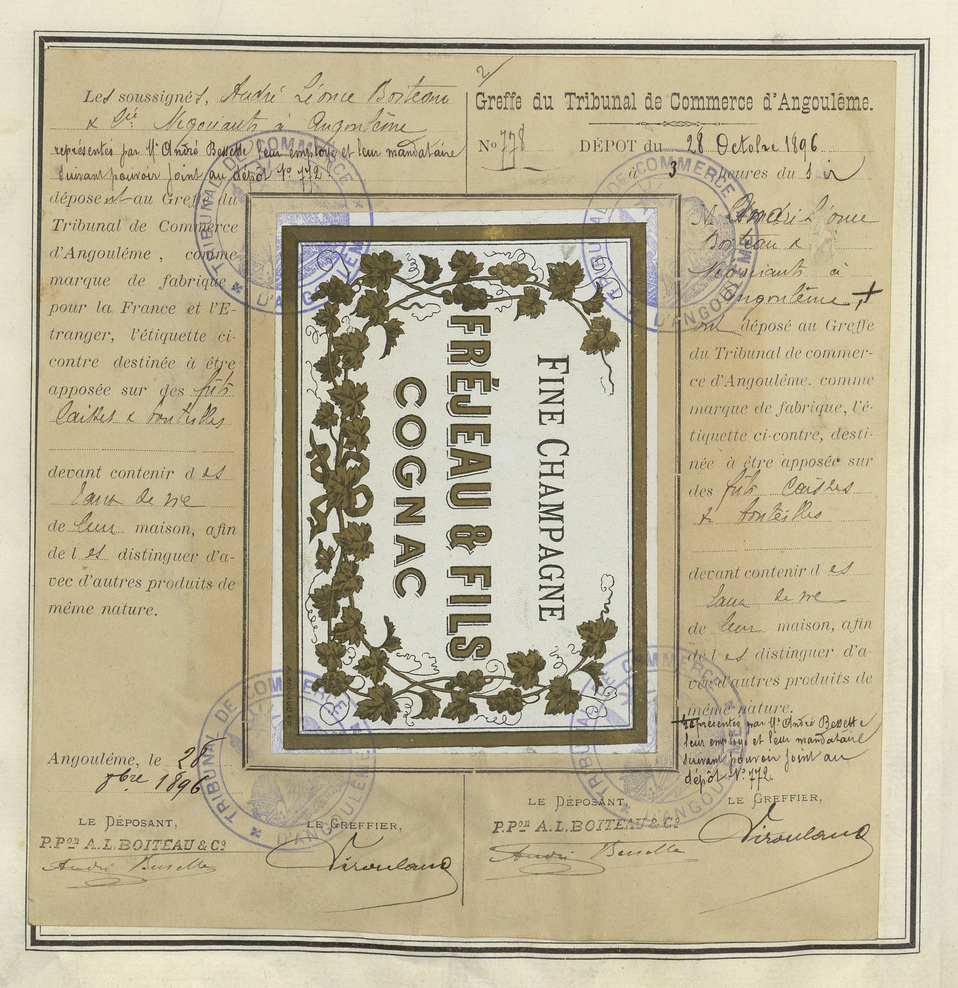 Les soussignés, André Léonce Boiteau
& Cie Négociants à Angoulême
représentés par Mr André Bessette leur employé et leur mandataire
suivant pouvoir joint au dépôt No 772
déposent au Greffe du
Tribunal de Commerce
d'Angoulême, comme
marque de fabrique
pour la France et l'E-
tranger, l'étiquette ci-
contre destinée à être
apposée sur des fûts
Caisses & bouteilles
devant contenir des
Eaux de vie
de leur maison, afin
de les distinguer d'a-
vec d'autres produits de
même nature.
Angoulême, le 28
8bre 1896
LE DÉPOSANT,
P.Pon A.L. BOITEAU & Co
André Bessette
LE GREFFIER,
FINE CHAMPAGNE
FRÉJEAU & FILS
COGNAC
Greffe du Tribunal de Commerce d'Angoulême.
No 778 DÉPOT du 28 Octobre 1896
à 3 heures du Soir
M. André Léonce
Boiteau &
Négociants à
Angoulême, +
ont déposé au Greffe
du Tribunal de commer-
ce d'Angoulême, comme
marque de fabrique, l'é-
tiquette ci-contre, desti-
née à être apposée sur
des fûts Caisses
& bouteilles
devant contenir des
Eaux de vie
de leur maison, afin
de les distinguer d'a-
vec d'autres produits de
même nature.
+ représentés par Mr André Bessette
leur employé et leur mandataire
suivant pouvoir joint au
dépôt No 772
LE DÉPOSANT,
P.Pon A.L. BOITEAU & Co
André Bessette
LE GREFFIER,
TRIBUNAL DE COMMERCE D'ANGOULÊME
TRIBUNAL DE COMMERCE D'ANGOULÊME
TRIBUNAL DE COMMERCE D'ANGOULÊME
TRIBUNAL DE COMMERCE D'ANGOULÊME